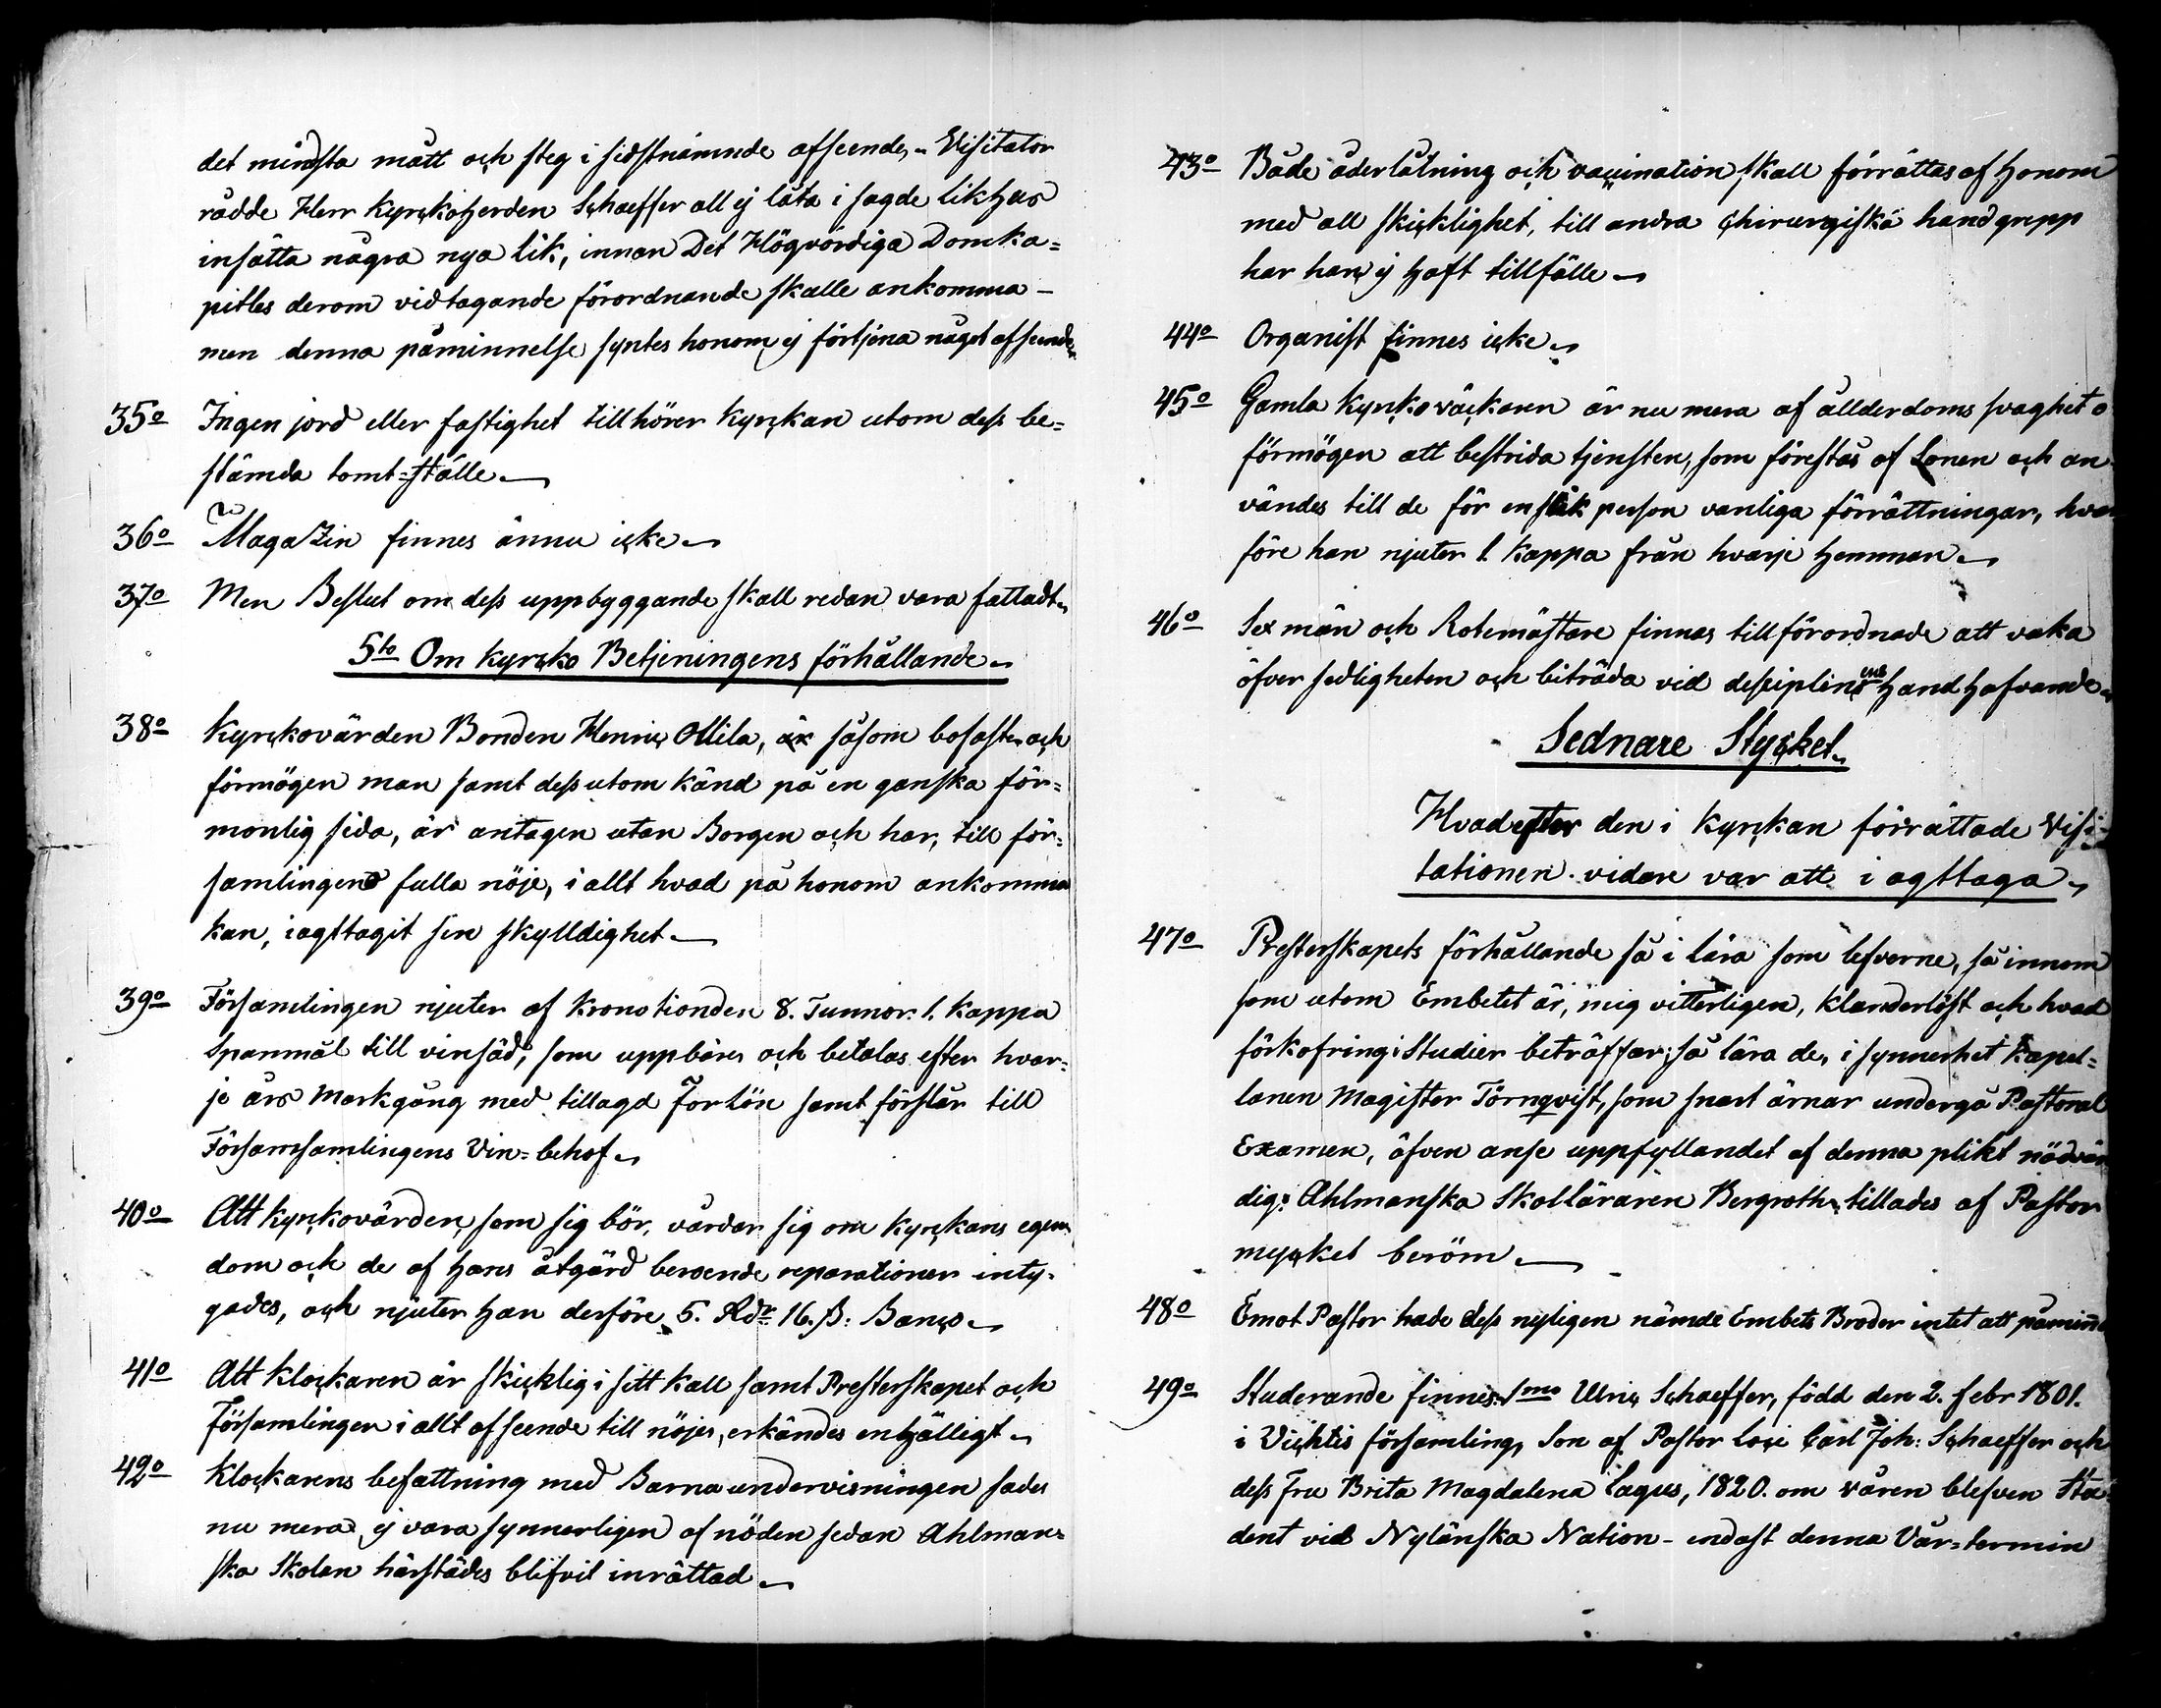 det mindsta mått och steg i sidstnämnde afseende. Visitator
rådde Herr Kyrckoherden Schaeffer att ej låta i sagde likhus
insätta några nya lik, innan Det Högvördiga Domka=
pitles derom vidtagande förordnande skulle ankomma -
men denna påminnelse syntes honom ej förtjena något afseende
35o Ingen jord eller fastighet tillhörer Kyrckan utom dess be=
stämda tomt=ställe.
36o Magazin finnes ännu icke.
37o Men Beslut om dess uppbyggande skall redan vara fattadt.
5to Om Kyrcko Betjeningens förhållande.
38o Kyrckovärden Bonden Henric Ollila, är såsom bofast och
förmögen man samt dessutom känd på en ganska för=
monlig sida, är antagen utan Borgen och har, till för=
samlingens fulla nöje, i allt hvad på honom ankomma
kan, iagttagit sin skylldighet.
39o Församlingen njuter af Kronotionden 8. Tunnor 1. Kappa
Spanmål till vinsäd, som uppbäres och betalas efter hvar=
je års Markgång med tillagd Forlön samt förslår till
Församsamlingens Vin=behof.
40o Att Kyrckovärden, som sig bör, vårdar sig om Kyrckans egen
dom och de af hans åtgärd beroende reparationer inty=
gades, och njuter han derföre 5. Rdr 16. ß: Banco.
41o Att Klockaren är skicklig i sitt Kall samt Presterskapet och
Församlingen i allt afseende till nöjes, erkändes enhälligt.
42o Klockarens befattning med Barnaundervisningen sades
nu mera ej vara synnerligen af nöden sedan Ahlman=
ska Skolan härstädes blifvit inrättad.
43o Både åderlåtning och vaccination skall förrättas af honom
med all skicklighet, till andra chirurgiska handgrepp
har han ej haft tillfälle.
44o Organist finnes icke.
45o Gamla Kyrckoväckaren är nu mera af ållderdoms svaghet o
förmögen att bestrida tjensten, som förestås af Sonen och an
vändes till de för en slik person vanliga förrättningar, hvar
före han njuter 1. Kappa från hvarje hemman.
46o Sexmän och Rotemästare finnas tillförordnade att vaka
öfver sedligheten och biträda vid dissciplinens handhafvande.
Sednare Stycket.
Hvad efter den i Kyrckan förrättade Visi=
tationen vidare var att i agttaga.
47o Presterskapets förhållande så i lära som lefverne, så innom
som utom Embetet är, mig vitterligen, klanderlöst och hvad
förkofring i Studier beträffar; så lära de, i synnerhet Kapel=
lanen Magister Törnqvist, som snart ärnar undergå Pastoral
Examen, äfven anse uppfyllandet af denna plikt nödvän
dig. Ahlmanska Skolläraren Bergroth tillades af Pastor
mycket beröm.
48o Emot Pastor hade dess nyligen nämde Embets Broder intet att påminna
49o Studerande finnes. 1mo Ulric Schaeffer, född den 2. febr 1801.
i Vichtis församling, Son af Pastor Loci Carl Joh: Schaeffer och
dess Fru Brita Magdalena Lagus, 1820. om våren blefven Stu
dent vid Nylänska Nation - endast denna Vår=termin